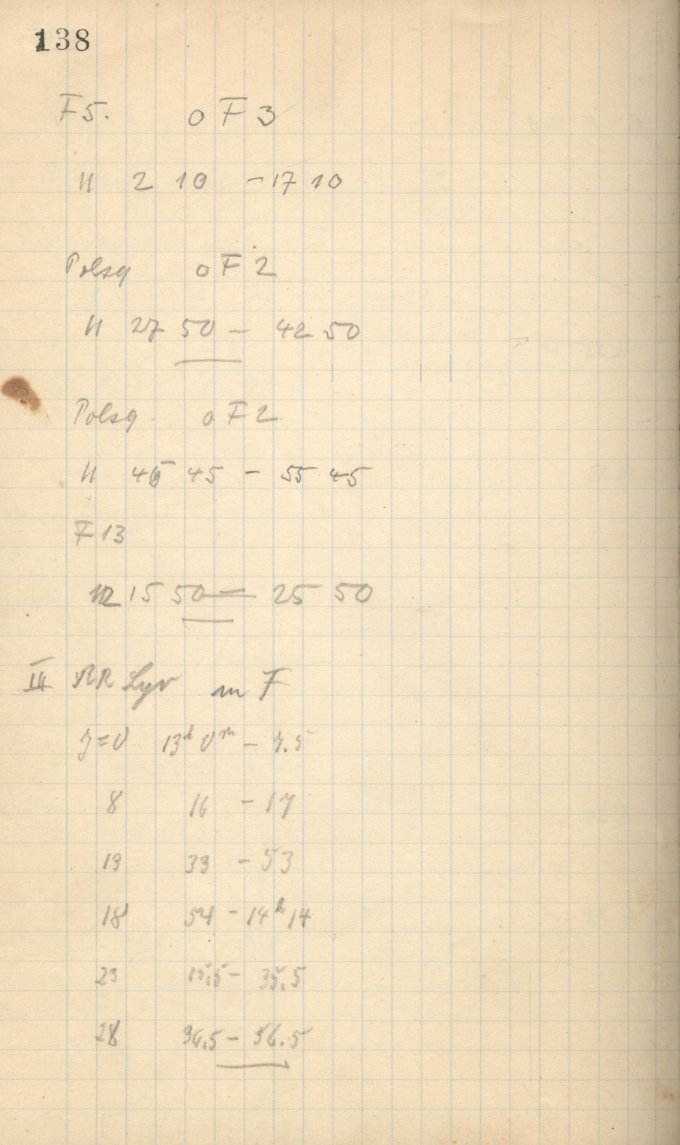 138
F5. o F3
11 2 10 - 17 10
Polsq o F2
11 27 50 - 42 50
Polsq o F2
11 45 45 - 55 45
F13
12 15 50 - 25 50
III RR Lyr in F
J=0 13h 0m - 7.5
8 16 - 17
13 33 - 53
18 54 - 14h 14
23 15.5 - 35.5
28 36.5 - 56.5